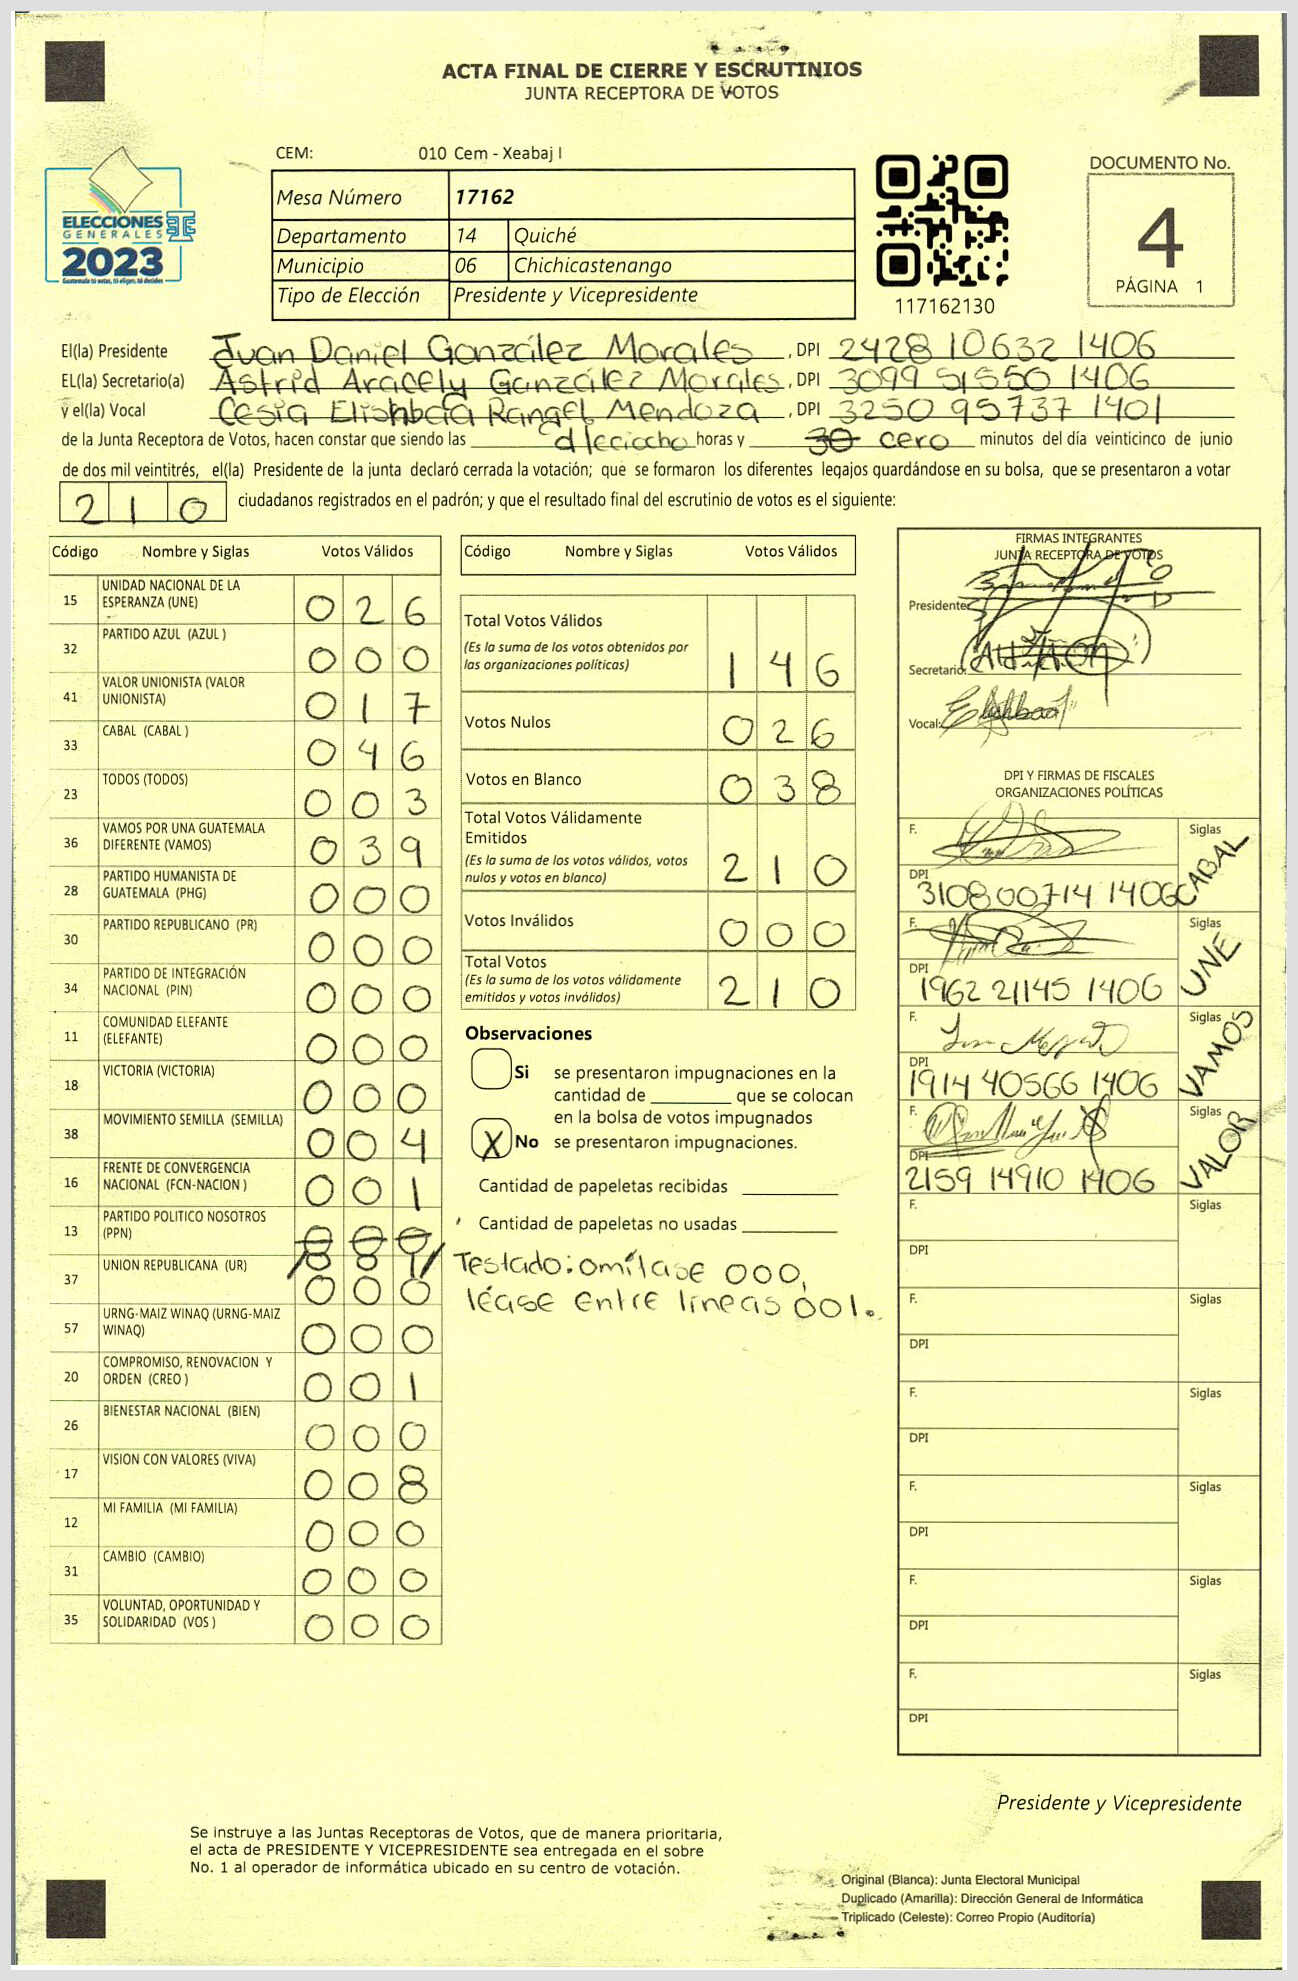 ACTA FINAL DE CIERRE Y ESCRUTINIOS
JUNTA RECEPTORA DE VOTOS
CEM: 010 Cem - Xeabaj I
ELECCIONES
GENERALES
2023
Guatemala tú votas, tú eliges, tú decides
Mesa Número 17162
Departamento 14 Quiché
Municipio 06 Chichicastenango
Tipo de Elección Presidente y Vicepresidente
117162130
DOCUMENTO No.
4
PÁGINA 1
El(la) Presidente Juan Daniel González Morales, DPI 2428 10632 1406
EL(la) Secretario(a) Astrid Aracely González Morales, DPI 3099 51550 1406
y el(la) Vocal Cesia Elishbafa Rangel Mendoza, DPI 3250 95737 1401
de la Junta Receptora de Votos, hacen constar que siendo las dieciocho horas y 30 cero minutos del día veinticinco de junio
de dos mil veintitrés, el(la) Presidente de la junta declaró cerrada la votación; que se formaron los diferentes legajos guardándose en su bolsa, que se presentaron a votar
210 ciudadanos registrados en el padrón; y que el resultado final del escrutinio de votos es el siguiente:
Código Nombre y Siglas Votos Válidos
15 UNIDAD NACIONAL DE LA ESPERANZA (UNE) 026
32 PARTIDO AZUL (AZUL ) 000
41 VALOR UNIONISTA (VALOR UNIONISTA) 017
33 CABAL (CABAL ) 046
23 TODOS (TODOS) 003
36 VAMOS POR UNA GUATEMALA DIFERENTE (VAMOS) 039
28 PARTIDO HUMANISTA DE GUATEMALA (PHG) 000
30 PARTIDO REPUBLICANO (PR) 000
34 PARTIDO DE INTEGRACIÓN NACIONAL (PIN) 000
11 COMUNIDAD ELEFANTE (ELEFANTE) 000
18 VICTORIA (VICTORIA) 000
38 MOVIMIENTO SEMILLA (SEMILLA) 004
16 FRENTE DE CONVERGENCIA NACIONAL (FCN-NACION ) 001
13 PARTIDO POLITICO NOSOTROS (PPN) 000 /001/
37 UNION REPUBLICANA (UR) 000
57 URNG-MAIZ WINAQ (URNG-MAIZ WINAQ) 000
20 COMPROMISO, RENOVACION Y ORDEN (CREO ) 001
26 BIENESTAR NACIONAL (BIEN) 000
17 VISION CON VALORES (VIVA) 008
12 MI FAMILIA (MI FAMILIA) 000
31 CAMBIO (CAMBIO) 000
35 VOLUNTAD, OPORTUNIDAD Y SOLIDARIDAD (VOS ) 000
Código Nombre y Siglas Votos Válidos
Total Votos Válidos 146
(Es la suma de los votos obtenidos por
las organizaciones políticas)
Votos Nulos 026
Votos en Blanco 038
Total Votos Válidamente
Emitidos 210
(Es la suma de los votos válidos, votos
nulos y votos en blanco)
Votos Inválidos 000
Total Votos 210
(Es la suma de los votos válidamente
emitidos y votos inválidos)
Observaciones
Si se presentaron impugnaciones en la
cantidad de ________ que se colocan
en la bolsa de votos impugnados
X No se presentaron impugnaciones.
Cantidad de papeletas recibidas
Cantidad de papeletas no usadas
Testado: omítase 000,
léase entre lineas 001.
FIRMAS INTEGRANTES
JUNTA RECEPTORA DE VOTOS
Presidente:
Secretario:
Vocal:
DPI Y FIRMAS DE FISCALES
ORGANIZACIONES POLÍTICAS
F. Siglas CABAL
DPI 3108 00714 1406
F. Siglas UNE
DPI 1962 21145 1406
F. Siglas VAMOS
DPI 1914 40566 1406
F. Siglas VALOR
DPI 2159 14910 1406
F. Siglas
DPI
F. Siglas
DPI
F. Siglas
DPI
F. Siglas
DPI
F. Siglas
DPI
F. Siglas
DPI
Presidente y Vicepresidente
Se instruye a las Juntas Receptoras de Votos, que de manera prioritaria,
el acta de PRESIDENTE Y VICEPRESIDENTE sea entregada en el sobre
No. 1 al operador de informática ubicado en su centro de votación.
Original (Blanca): Junta Electoral Municipal
Duplicado (Amarilla): Dirección General de Informática
Triplicado (Celeste): Correo Propio (Auditoría)